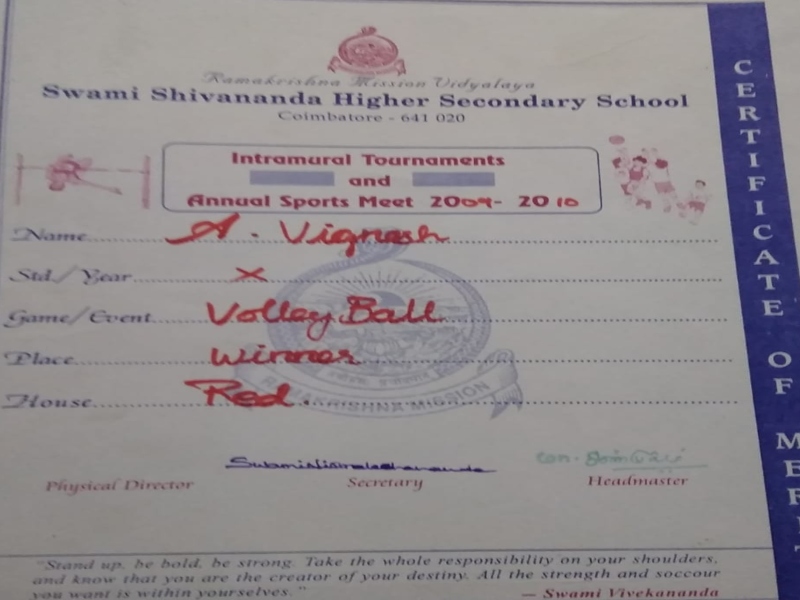 Ramakrishna Mission Vidyalaya
Swami Shivananda Higher Secondary School
Coimbatore - 641 020
Intramural Tournaments
and
Annual Sports Meet 2009- 2010
Name A. Vignesh
Std./Year X
Game/Event Volley Ball
Place Winner
House Red.
RAMAKRISHNA MISSION
Physical Director
Secretary
Headmaster
"Stand up, be bold, be strong. Take the whole responsibility on your shoulders,
and know that you are the creator of your destiny. All the strength and soccour
you want is within yourselves."
— Swami Vivekananda
CERTIFICATE OF MERIT